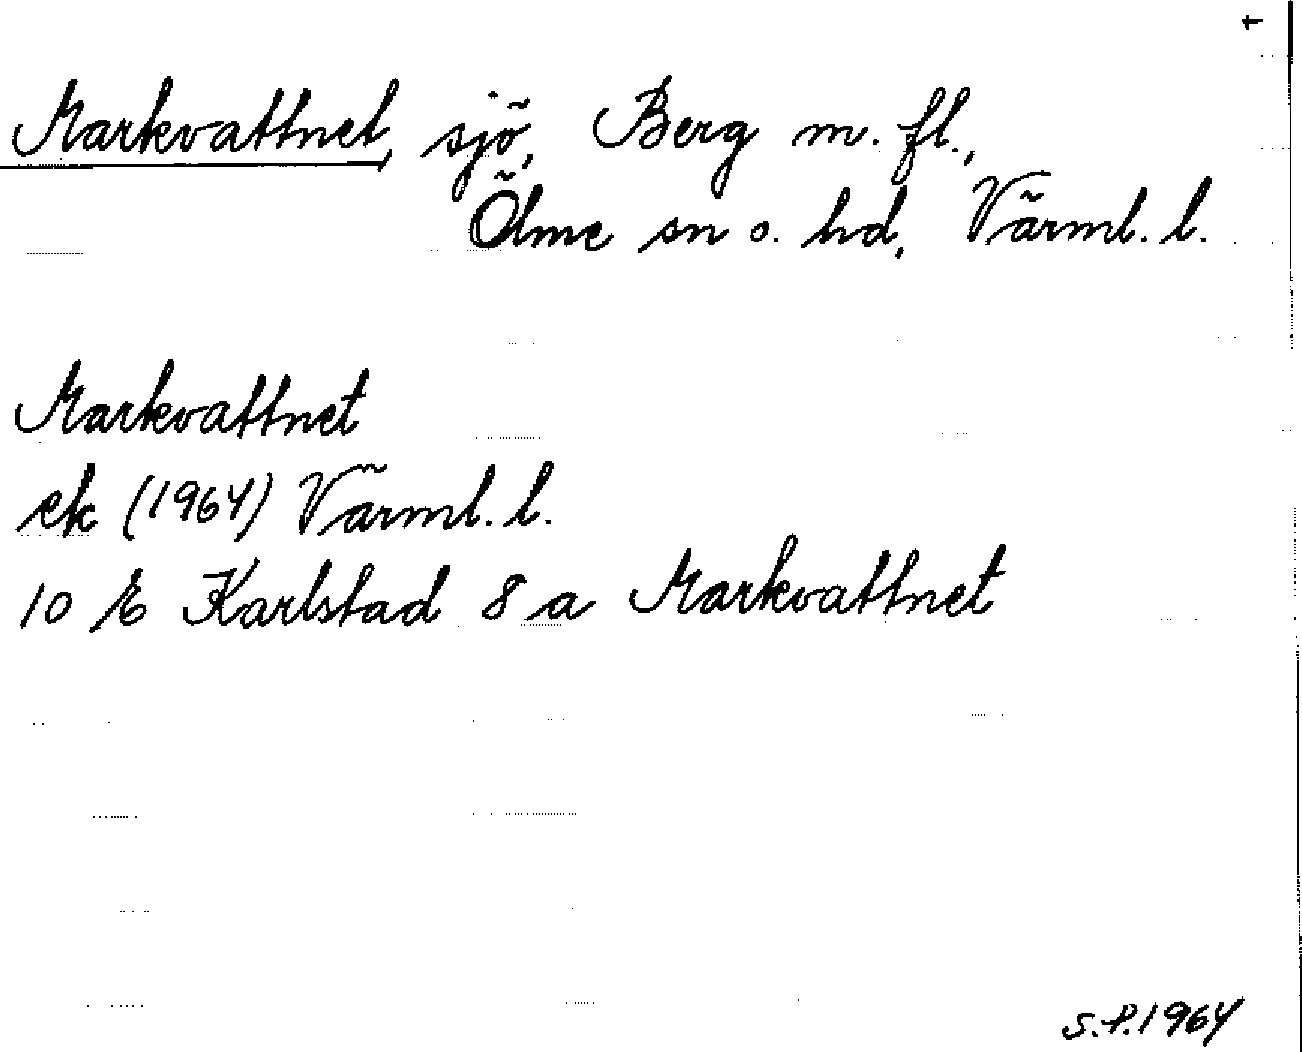 Markvattnet, sjö, Berg m. fl.,
Ölme sn o. hd, Värml. l.
Markvattnet
ek (1964) Värml. l.
10 E Karlstad 8 a Markvattnet
S.P. 1964